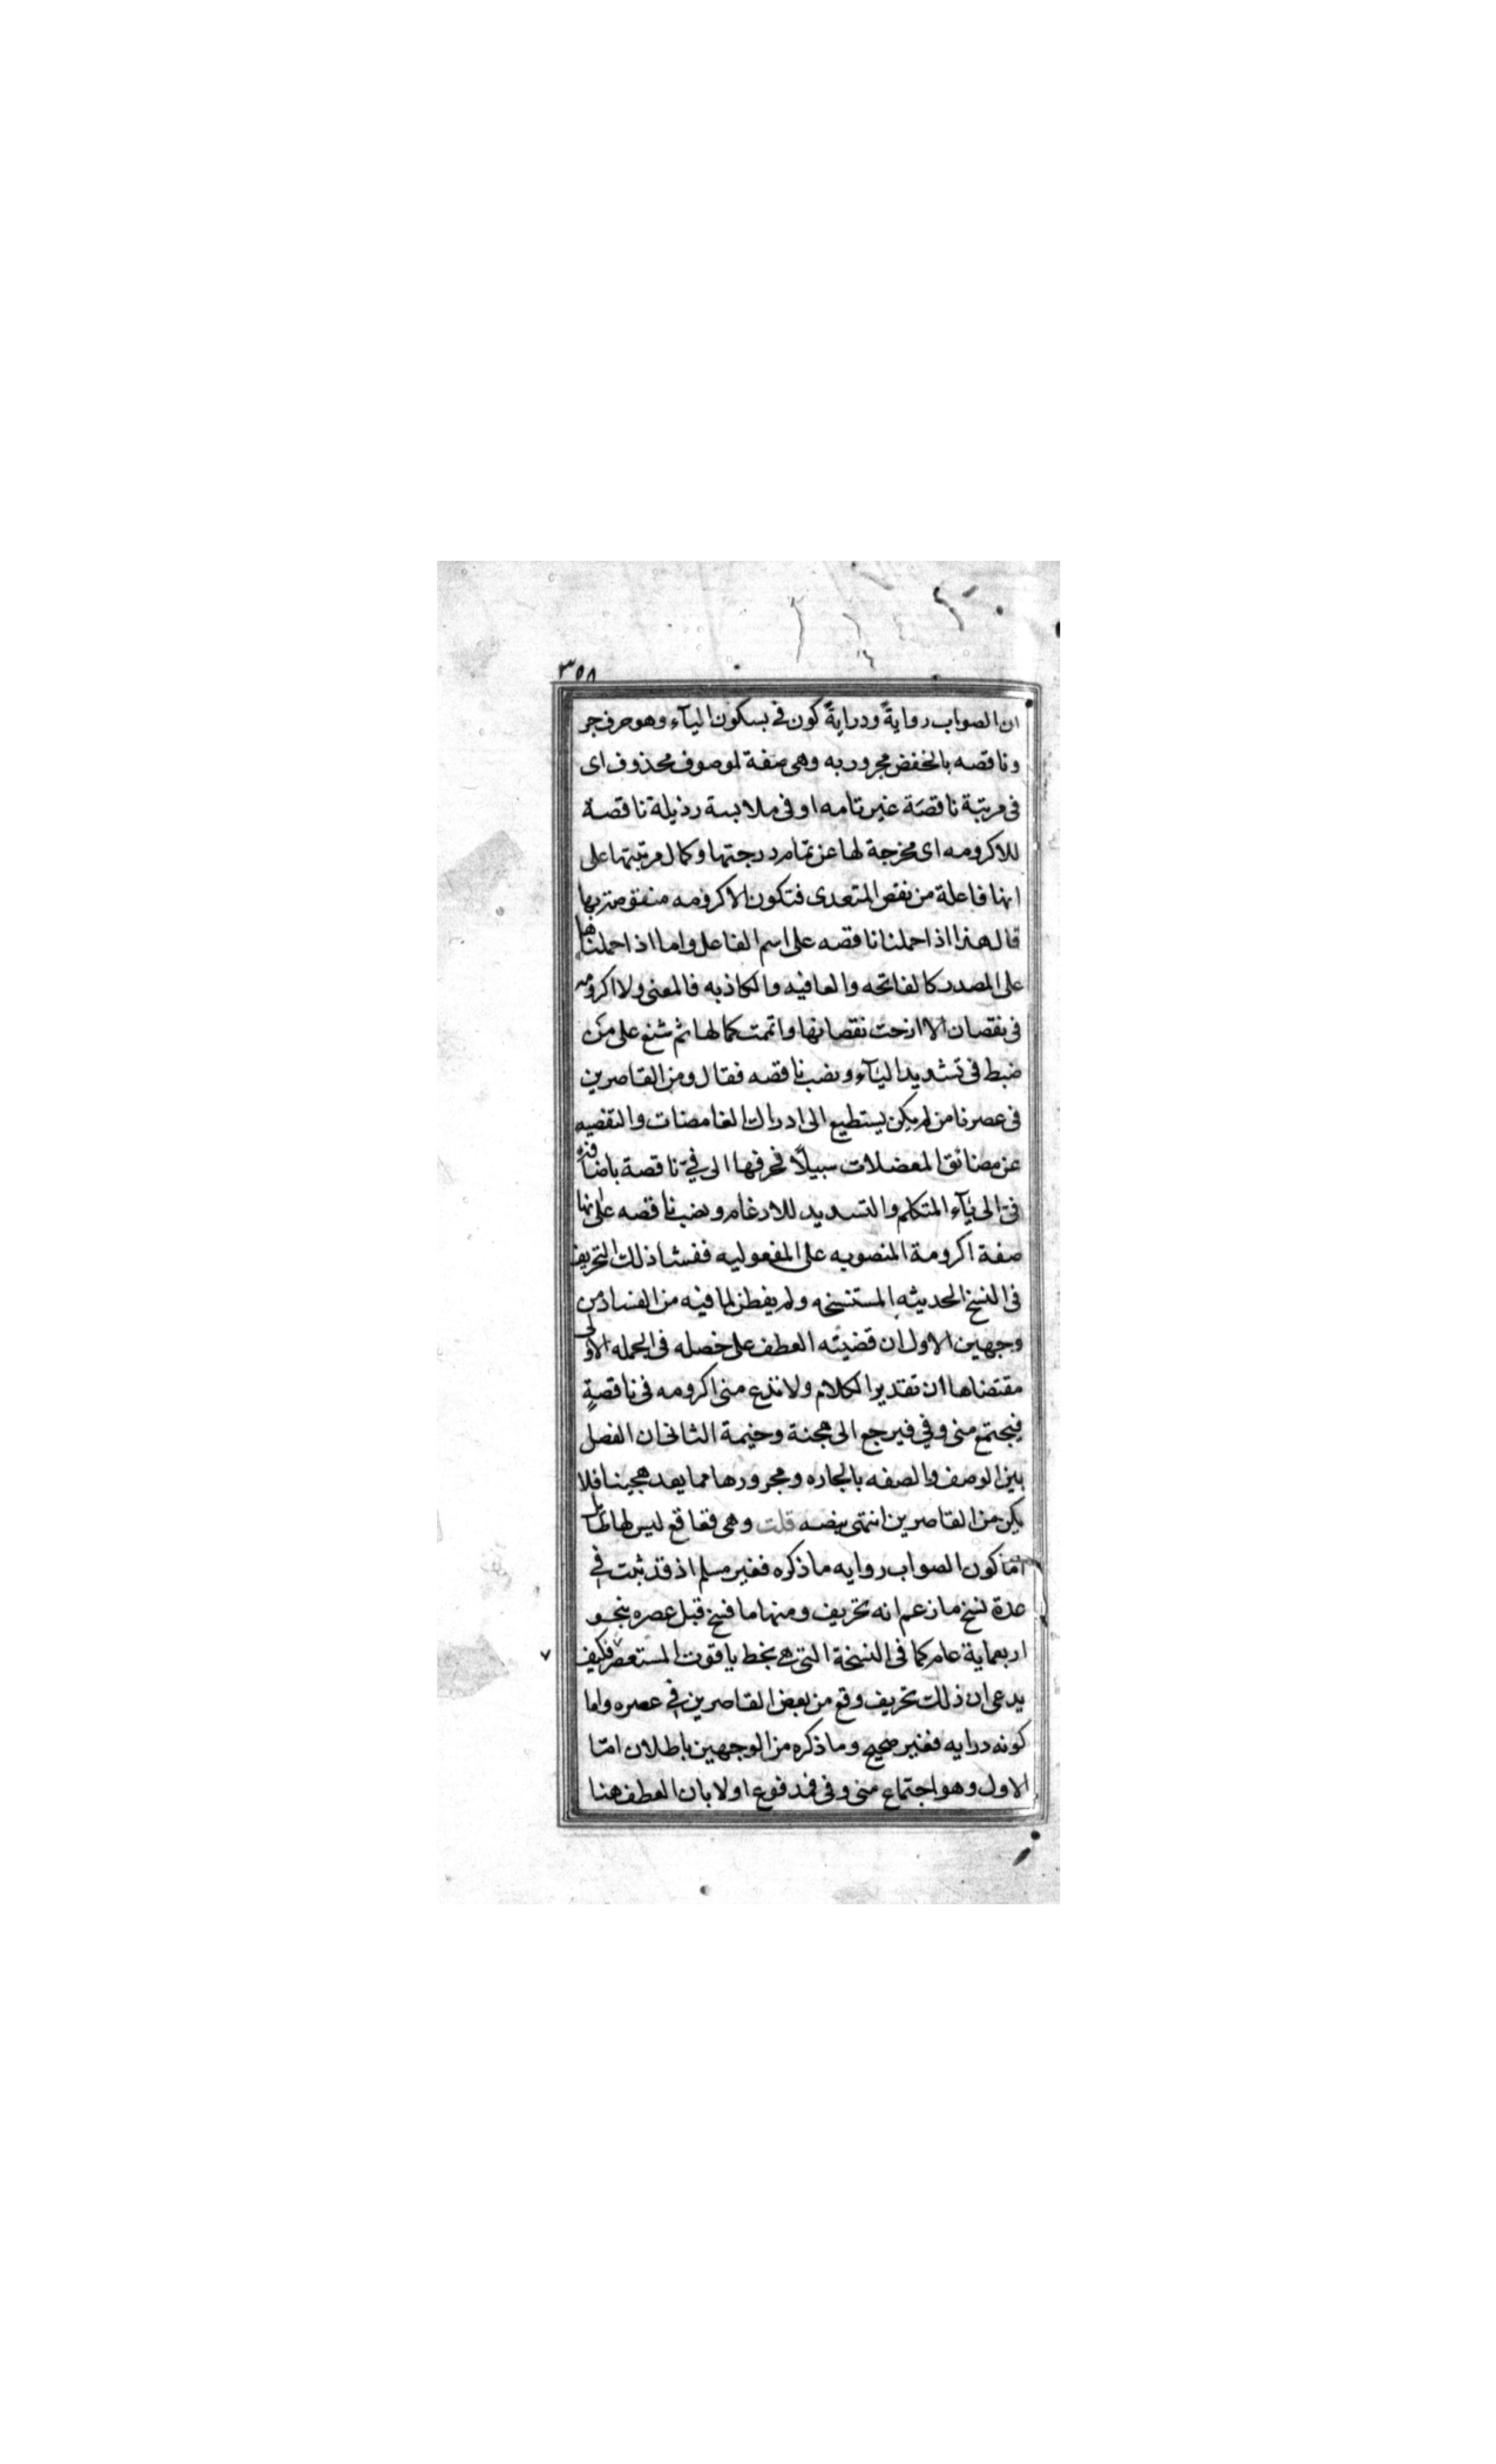 ٣٥٨
ان الصواب رواية ودراية كون في بسكون الياء وهو حرف جر
وناقصه بالخفض مجرور به وهي صفة لموصوف محذوف اى
فى مرتبة ناقصة غير تامه او فى ملابسة رذيلة ناقصة
للاكرومه اى مخرجة لها عن تمام درجتها وكمال مرتبتها على
انها فاعلة من نقص المتعدى فتكون الاكرومه منقوصة بها
قال هذا اذا حملنا ناقصه على اسم الفاعل واما اذا حملناها
على المصدر كالفاتحه والعافيه والكاذبه فالمعنى ولا اكرومه
فى نقصان الا ازحت نقصانها واتممت كمالها ثم شنع على من
ضبط فى تشديد الياء ونصب ناقصه فقال ومن القاصرين
فى عصرنا من لم يكن يستطيع الى ادراك الغامضات والتفصيه
عن مضائق المعضلات سبيلا فحرفها الى فيّ ناقصة باضافة
فى الى ياء المتكلم والتسديد للادغام ونصب ناقصه على انها
صفة اكرومة المنصوبه على المفعوليه ففشا ذلك التحريف
فى النسخ الحديثه المستنسخه ولم يفطن لما فيه من الفساد من
وجهين الاول ان قضيته العطف على خصله فى الجمله الاولى
مقتضاها ان تقدير الكلام ولا تدع منى اكرومه فى ناقصةٍ
فيجتمع منى وفي فيرجع الى هجنة وخيمة الثانى ان الفصل
بين الوصف والصفه بالجاره ومجرورها مما يعد هجينا فلا
يكن من القاصرين انتهى بنصه قلت وهى فقاقع ليس لها طائل
اما كون الصواب روايه ما ذكره فغير مسلم اذ قد ثبت في
عدة نسخ ما زعم انه تحريف ومنها ما نسخ قبل عصره بنحو
اربعماية عام كما فى النسخة التى هى بخط ياقوت المستعصم فكيف
يدعى ان ذلك تحريف وقع من بعض القاصرين في عصره واما
كونه درايه فغير صحيح وما ذكره من الوجهين باطلان امّا
الاول وهو اجتماع منى وفى فمدفوع اولا بان العطف هنا